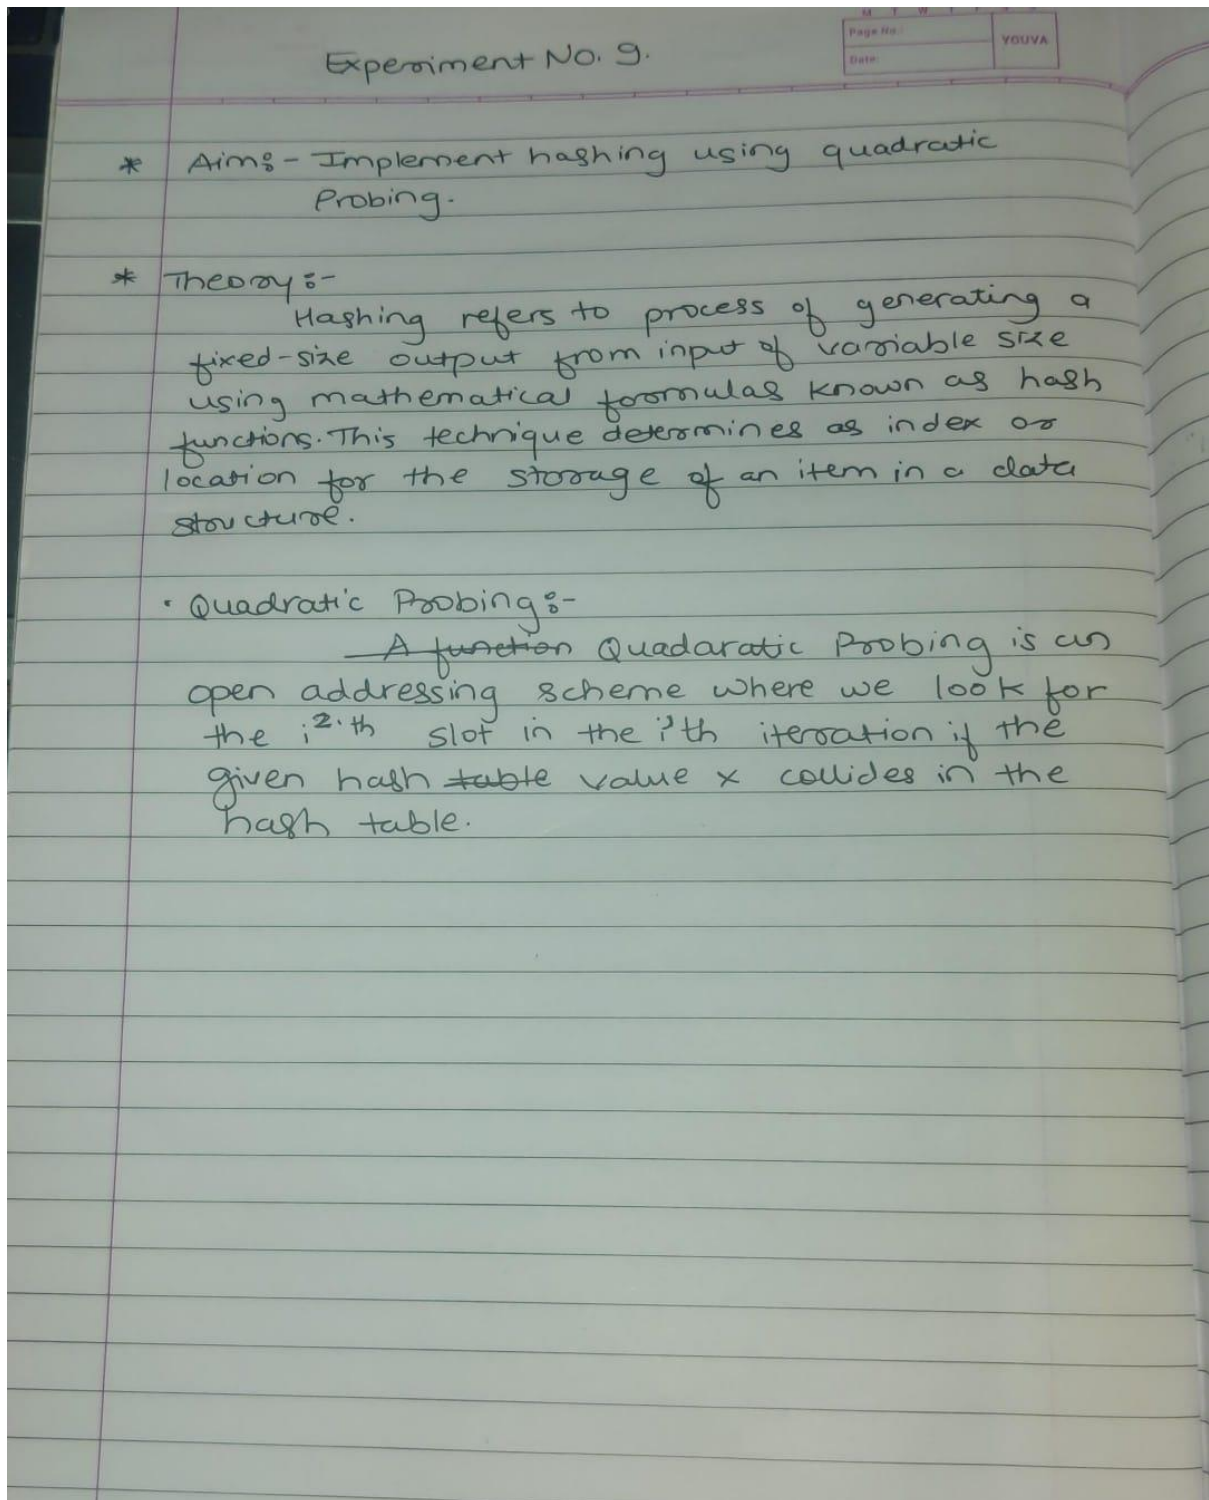 M T W T F S
Page No.:
YOUVA
Date:
Experiment No. 9.
* Aim:- Implement hashing using quadratic
Probing.
* Theory:-
Hashing refers to process of generating a
fixed-size output from input of variable size
using mathematical formulas known as hash
functions. This technique determines as index or
location for the storage of an item in a data
structure.
• Quadratic Probing:-
A function Quadaratic Probing is an
open addressing scheme where we look for
the i²·th slot in the i'th iteration if the
given hash table value x collides in the
hash table.